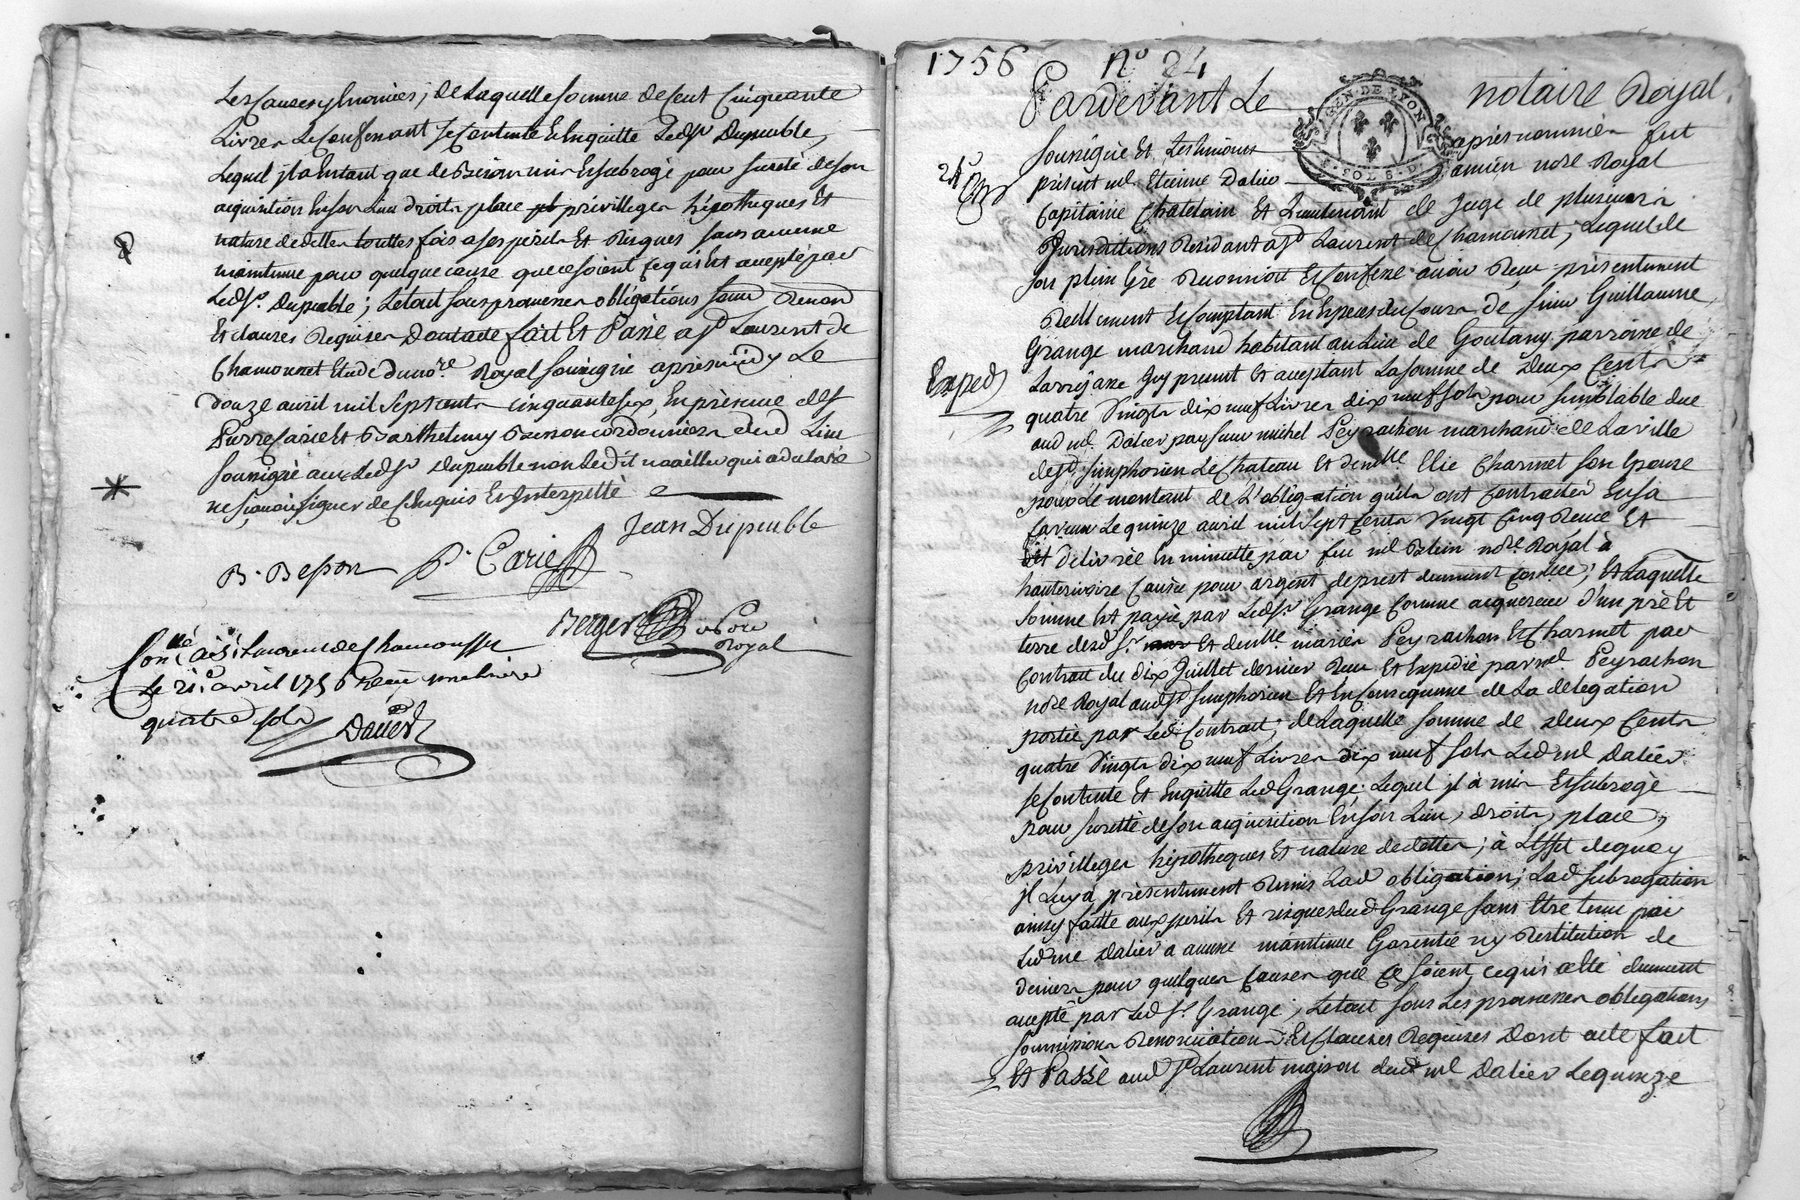 Les causes ynoncées; de Laquelle somme de Cent Cinquante
Livres Le Confessant se Contente et Enquitte Ledsr. Dupeuble,
Lequel jl a Entant que de Besoin mis Et subrogé pour sureté de son
acquisition En son Lieu droits place et privilleges hipotheques Et
nature de dettes touttes fois a ses perils Et Risques sans aucune
maintenue pour quelque cause que ce soient ce qui Est accepté par
Ledsr. Dupeuble; Le tout sous promesses obligations
Et clauses Requises Dont acte fait Et Passé a St. Laurent de
Chamousset Etude du nore. Royal soussigné apres midy Le
douze avril mil sept cents cinquante six, En présence des
Pierre Carie Et Barthelemy Besson cordonniers dud Lieu
soussignés avec Ledsr Dupeuble non Ledit qui a declaré
ne sçavoir signer de ce Enquis Et Interpellé
Jean Dupeuble
B. Besson P. Carie
Berger
Royal
Conlé à St Laurent de Chamousset
Le 21e. avril 1756 Receu
quatre sols
Daller
1756 no 24
Pardevant Le notaire Royal
GEN. DE LYON
soussigné Et Les témoins après nommés fut
présent me. Etienne Dalier ancien nore Royal
Capitaine Chatelain Et Lieutenant de Juge de plusieurs
Jurisdictions Résidant a St Laurent de Chamousset, Lequel de
son plein Gré Reconnoit Et Confesse avoir Reçu présentement
Réellement Et Comptant En Especes du Cours de sieur Guillaume
Grange marchand habitant au Lieu de parroisse de
Exped
Larrajasse jcy présent Et acceptant La somme de deux Cents
quatre Vingts dix neuf Livres dix neuf sols pour semblable due
aud me Dalier par sieur michel Peyrachon marchand de La ville
de St. simphorien Le Chateau Et demlle. Elie Charmet son Epouse
pour Le montant de L'obligation qu'ils ont Contractés En sa
faveur Le quinze avril mil sept Cents Vingt Cinq Reçue Et
Délivrée En minutte par feu me Blein nore. Royal à
hauterivoire Causée pour argent de prest ; Et Laquelle
somme Est payée par Ledsr. Grange Comme acquereur d'un pré Et
terre desd sr. Et demlle. mariés Peyrachon Et Charmet par
Contrat du dix Juillet dernier Reçu Et Expedié par me Peyrachon
nore Royal aud St. simphorien Et En Consequence de La delegation
portée par Led Contrat; de Laquelle somme de deux Cents
quatre Vingts dix neuf Livres dix neuf sols Led me Dalier
se Contente Et Enquitte Led Grange Lequel jl à mis Et subrogé
pour suretté de son acquisition En son Lieu, droits, place,
privilleges hipotheques Et nature de dettes; à L'effet de quoy
jl Luy à présentement Remis Lad obligation; Lad subrogation
ainsy faitte aux perils Et risques dud Grange sans Etre tenu par
Led me Dalier a aucune maintenue Garentie ny Restitution de
deniers pour quelques Causes que Ce soient, ce qui a été dument
accepté par Led sr. Grange; Le tout sous Les promesses obligations
soumissions Renonciations Et Clauses Requises Dont acte fait
Et Passé aud St Laurent maison dud me Dalier Le quinze